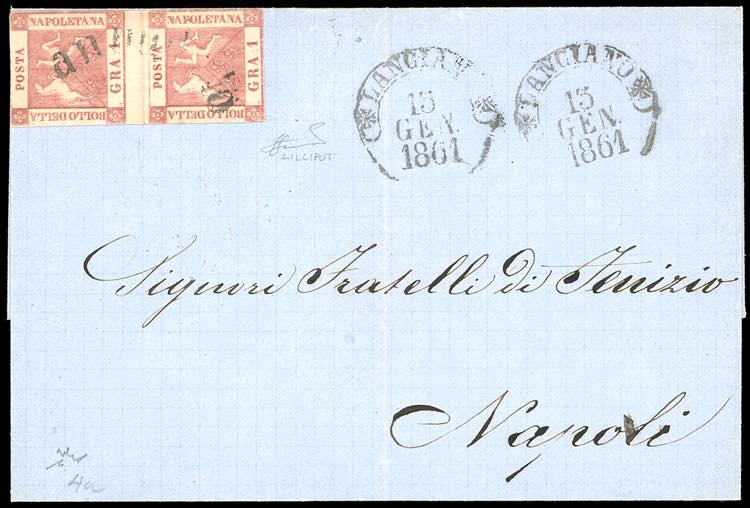 NAPOLETANA
POSTA
GRA 1
BOLLO DELLA
NAPOLETANA
POSTA
GRA 1
BOLLO DELLA
LANCIANO
15
GEN.
1861
LANCIANO
15
GEN.
1861
LILLIPUT
Signori Fratelli di Tenizio
Napoli
4a